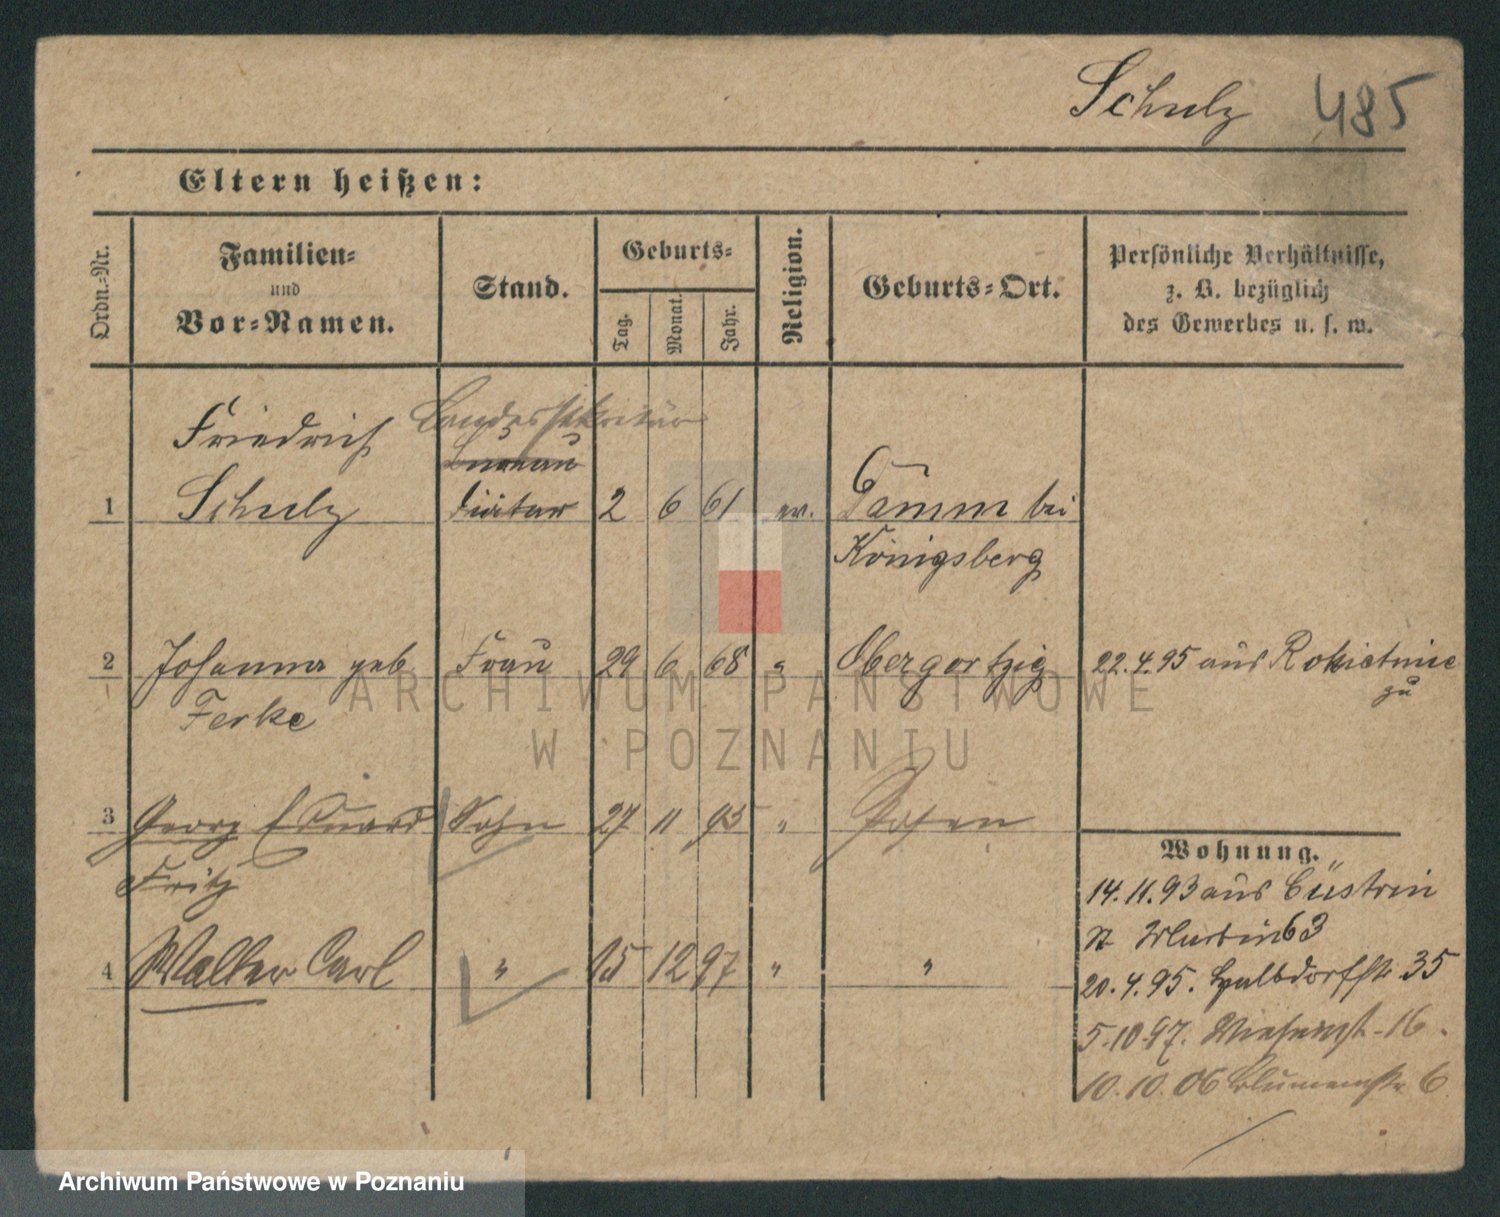 Schulz 485
Eltern heißen:
Ordn.-Nr. Familien- und Vor-Namen. Stand. Geburts- Tag. Monat. Jahr. Religion. Geburts-Ort. Persönliche Verhältnisse, z. B. bezüglich des Gewerbes u. s. w.
Friedrich Landessekretär
Bureau
1 Schulz diätar 2 6 61 ev. Damm bei
Königsberg
2 Johanna geb Frau 29 6 68 " Obergörtzig 22.4.95 aus Rokietnice
zu
Ferke
3 Georg Eduard Sohn 27 11 95 " Posen
Fritz
4 Walter Carl " 15 12 97 " "
Wohnung.
14.11.93 aus Cüstrin
St Martin 63
20.4.95. Halbdorfstr 35
5.10.97. Wiesenstr. 16.
10.10.06 Blumenstr 6
ARCHIWUM PAŃSTWOWE
W POZNANIU
Archiwum Państwowe w Poznaniu